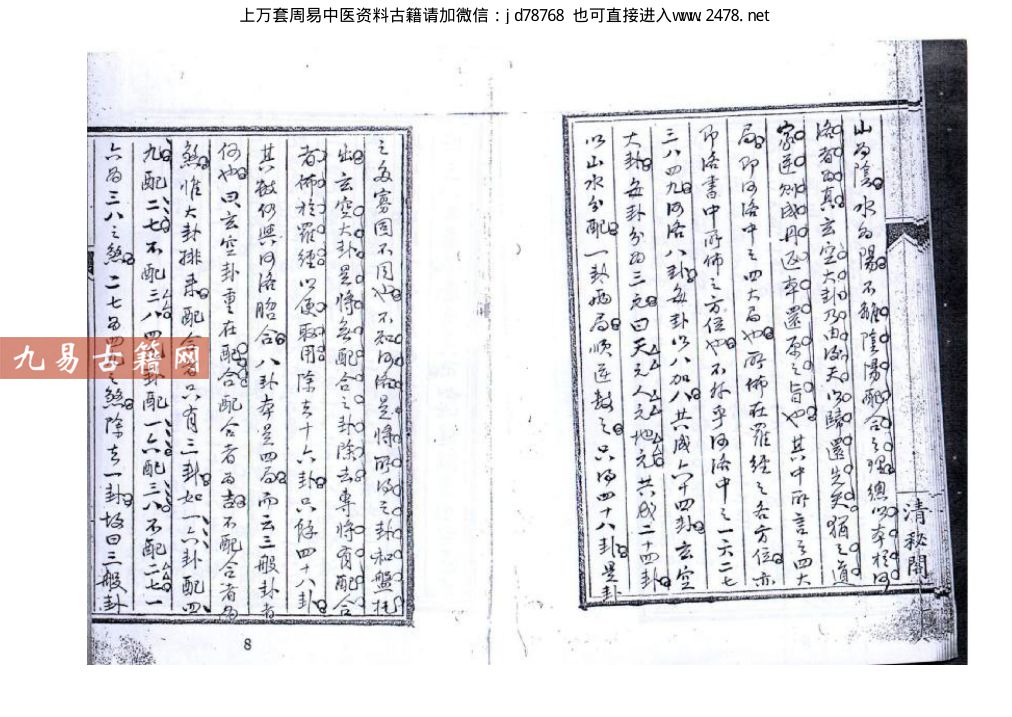 上万套周易中医资料古籍请加微信：jd78768 也可直接进入www.2478.net
山为陰水為陽不離陰陽配合之理總以本於河
洛者為真玄空大卦乃由後天以歸還先天猶之道
家逆則成丹返本還原之旨也其中所言之四大
局即河洛中之四大局也所佈在羅經之各方位亦
即洛書中所佈之方位也不外乎河洛中之一六二七
三八四九河洛八卦每卦以八加八共成六十四卦玄空
大卦每卦分為三元曰天元人元地元共成二十四卦
以山水分配一卦兩局順逆數之只得四十八卦是卦
清秘閣
之多寡固不同也不知河洛是將所得之卦和盤托
出玄空大卦是將無配合之卦除去專將有配合
者佈於羅經以便取用除去十六卦只餘四十八卦
其數仍與河洛脗合八卦本是四局而云三般卦者
何也曰玄空卦重在配合配合者為吉不配合者為
煞惟大卦排來配合者只有三卦如一六卦配四
九配二七不配三八四九卦配一六配三八不配二七一
六為三八之煞二七為四九之煞除去一卦故曰三般卦
九易古籍网
8